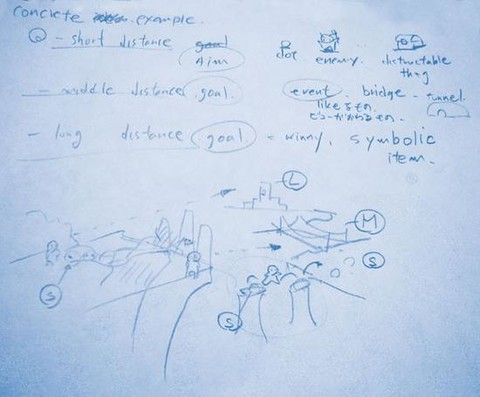 concrete example.
- short distance Aim enemy. distructable
thing
- middle distance goal. event. bridge - tunnel.
- long distance goal = winny. symbolic
item.
L
M
S
S
S